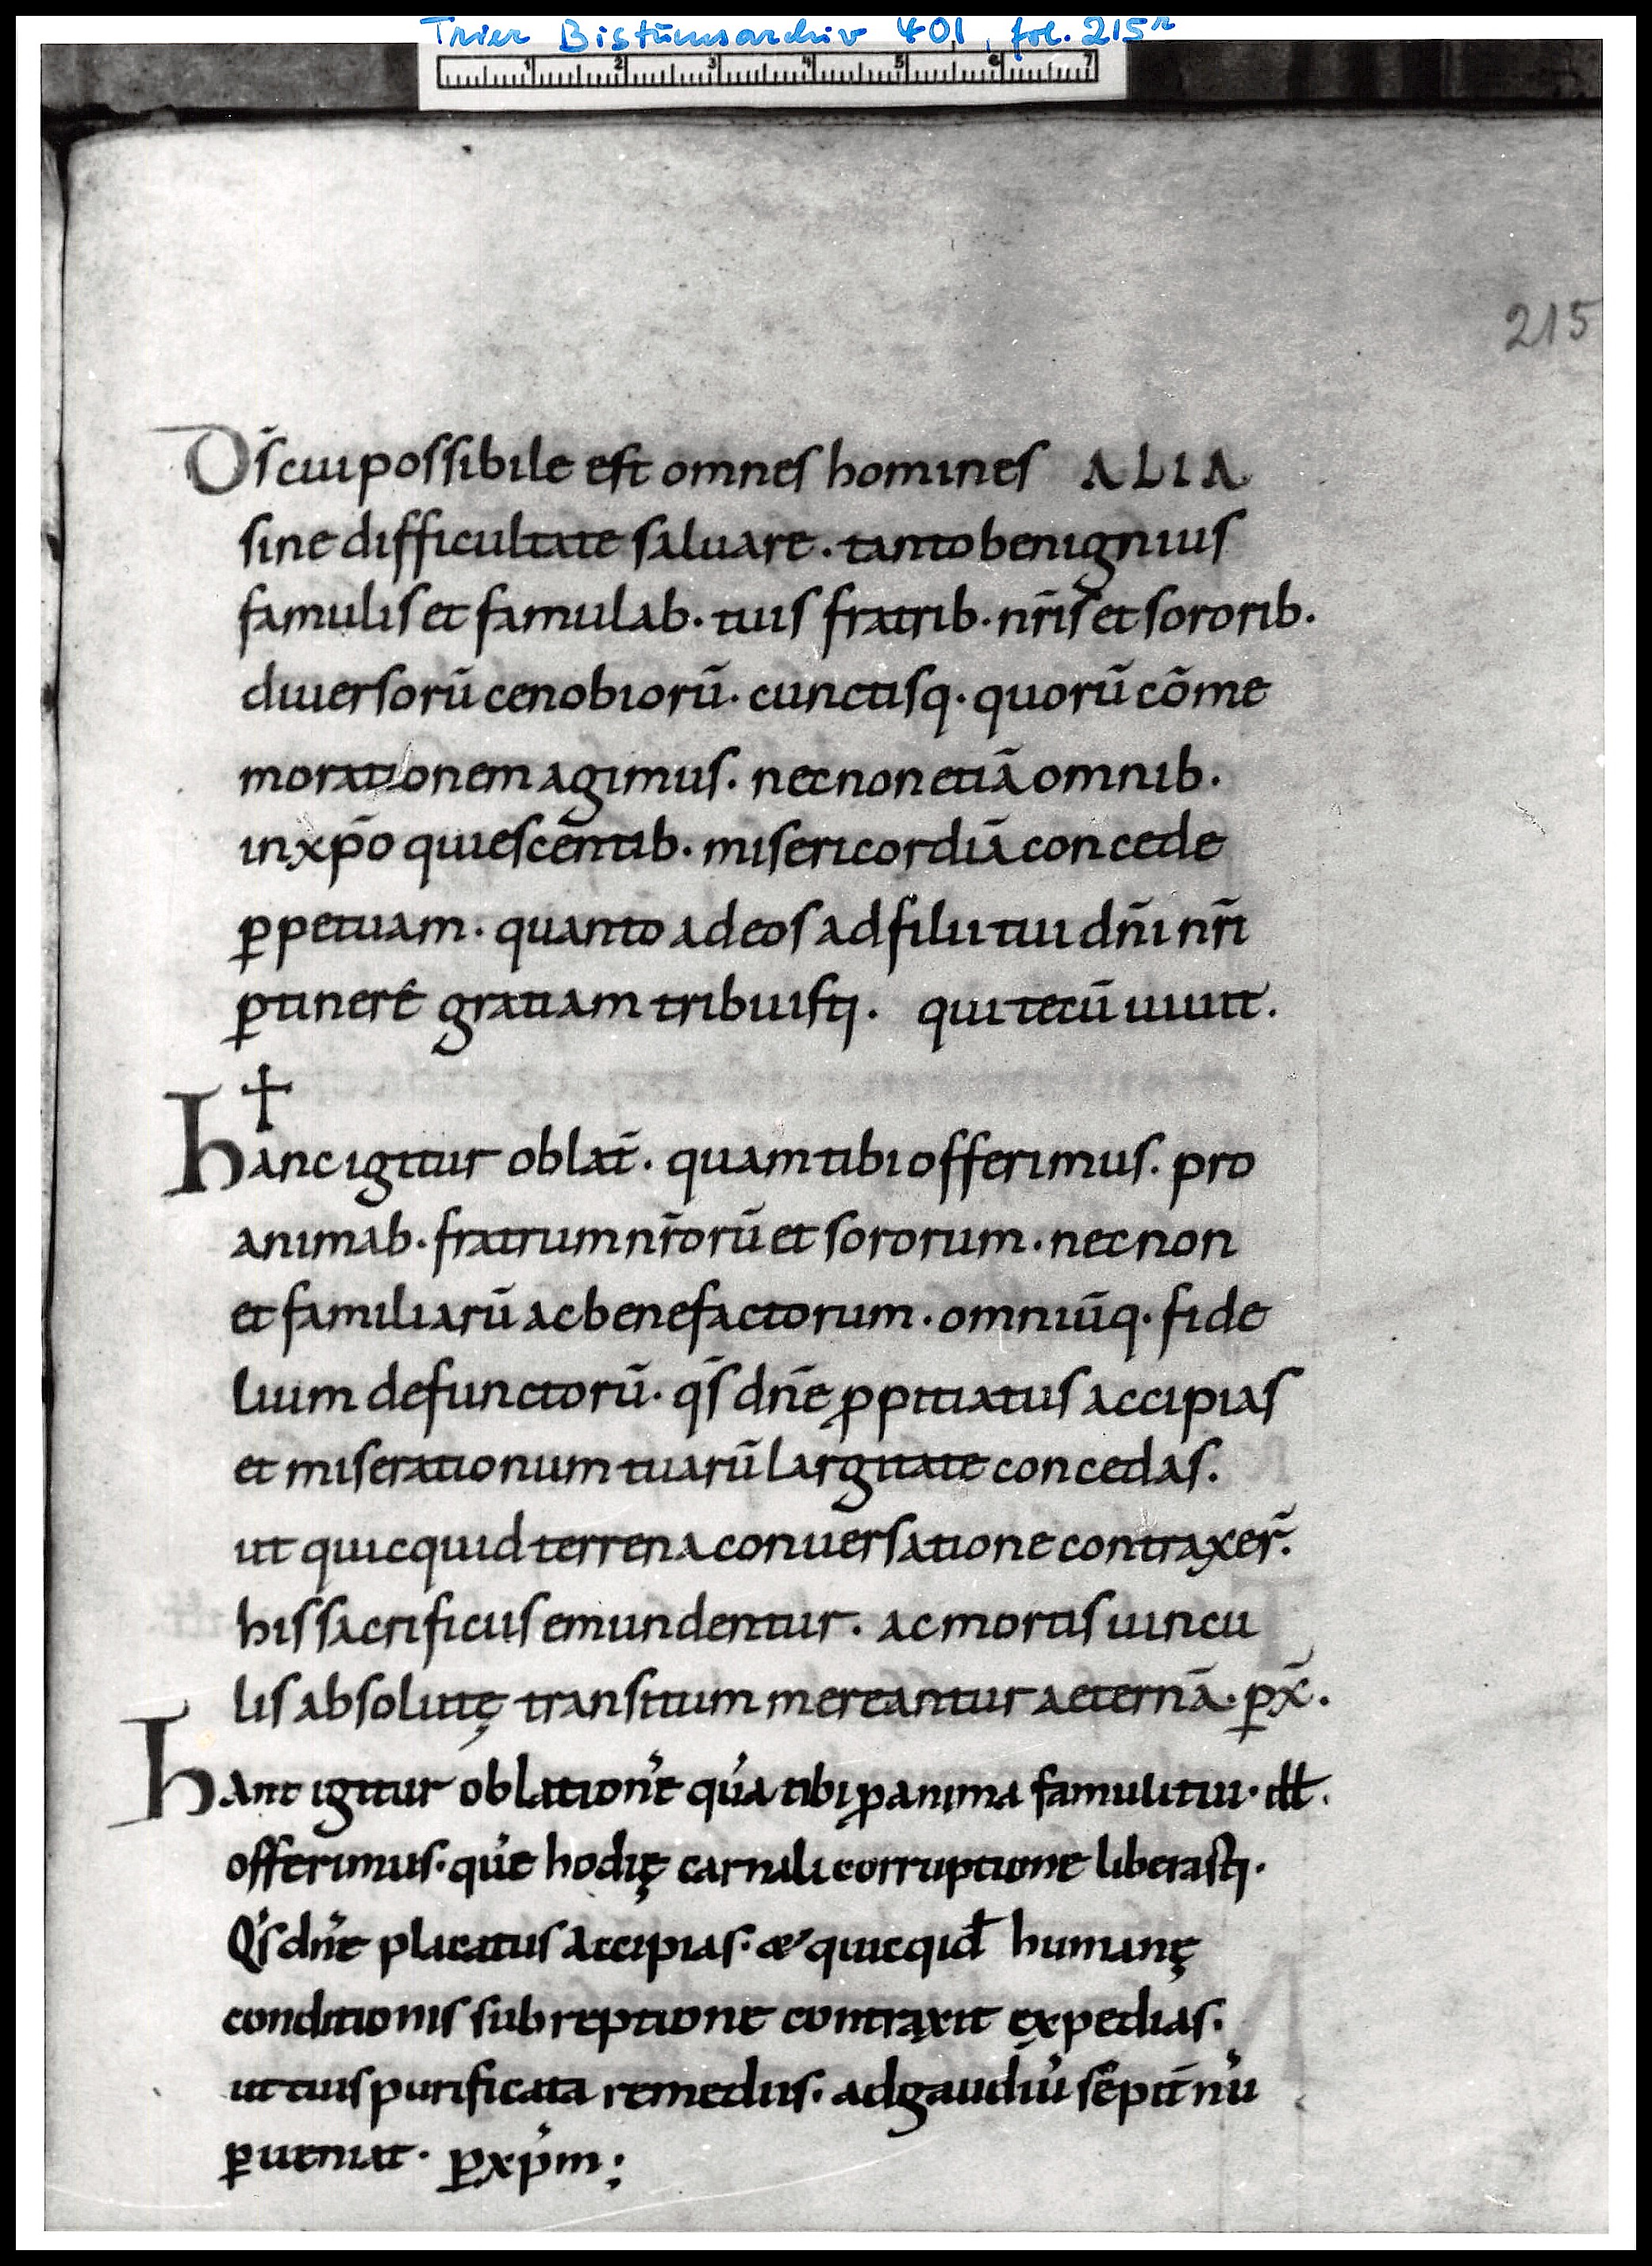 Trier Bistumsarchiv 401, fol. 215r
1 2 3 4 5 6 7
215
Ds̄ cui possibile est omnes homines ALIA
sine difficultate saluare. tanto benignius
famulis et famulab. tuis fratrib. nr̄is et sororib.
diuersorū cenobiorū. cunctisq. quorū cōme
morationem agimus. necnon etiā omnib.
in xp̄o quiescentib. misericordiā concede
ꝑpetuam. quanto ad eos ad filii tui dn̄i nr̄i
ꝑtinere gratiam tribuisti. qui tecū uiuit.
†
Hanc igitur oblat̄. quam tibi offerimus. pro
animab. fratrum nr̄orū et sororum. necnon
et familiarū ac benefactorum. omniūq. fide
lium defunctorū. qs̄ dn̄e ꝓpitiatus accipias
et miserationum tuarū largitate concedas.
ut quicquid terrena conuersatione contraxer̄.
his sacrificiis emundentur. ac mortis uincu
lis absolutę transitum mereantur aeternā. ꝑ x̄.
Hanc igitur oblationē quā tibi ꝓ anima famuli tui. ill̄.
offerimus. quē hodię carnali corruptione liberasti.
Qs̄ dn̄e placatus accipias. & quicqid̄ humanę
conditionis subreptione contraxit expedias.
ut tuis purificata remediis. ad gaudiū sēpit̄nū
ꝑueniat. ꝑ xp̄m;